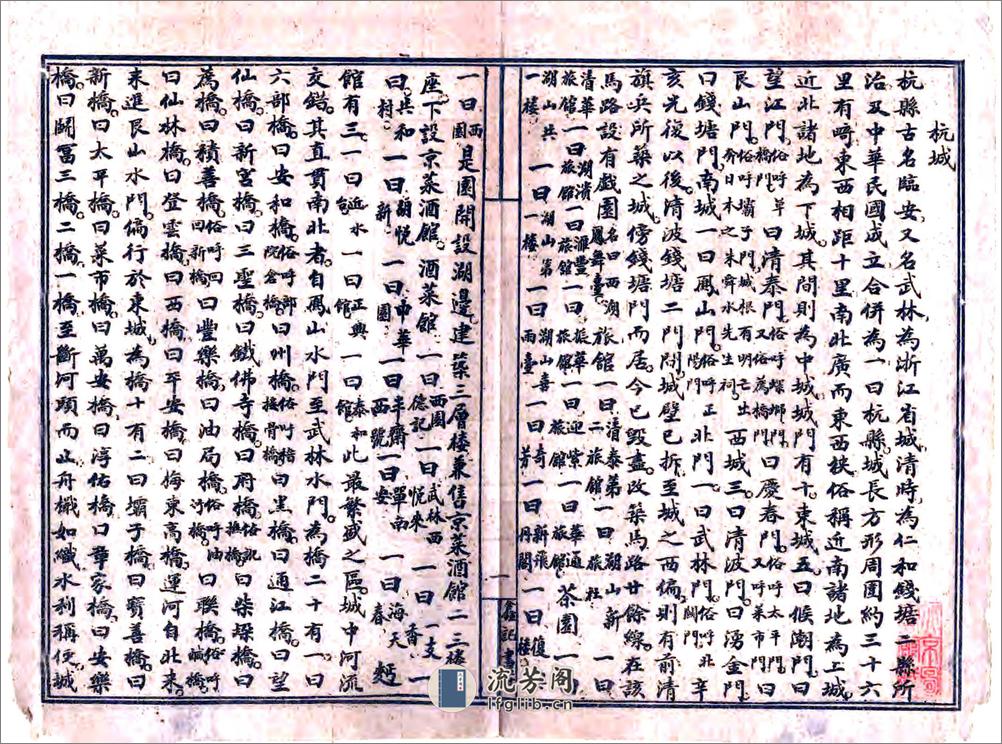 杭城
杭縣古名臨安又名武林為浙江省城清時為仁和錢塘二縣所
治及中華民國成立合併為一曰杭縣城長方形周圍約三十六
里有畸東西相距十里南北廣而東西狹俗稱近南諸地為上城
近北諸地為下城其間則為中城城門有十東城五曰候潮門曰
望江門俗呼草橋門曰清泰門俗呼螺螄門曰慶春門俗呼太平門又呼菜市門曰
艮山門俗呼壩子門城根有明亡出奔日本之朱舜水先生祠西城三曰清波門曰湧金門
曰錢塘門南城一曰鳳山門俗呼正陽門北門一曰武林門俗呼北關門辛
亥光復以後清波錢塘二門門城壁已拆至城之西偏則有前清
旗兵所築之城傍錢塘門而居今已毀盡改築馬路廿餘線在該
馬路設有戲園名曰西湖鳳舞臺旅館一曰清泰第二旅館一曰湖山旅社一曰新
清華旅館一曰湖濱旅館一曰滙豐旅館一曰振華旅館一曰迎紫旅館一曰華通旅館茶園一曰
湖山共一樓一曰湖山第一樓一曰湖山喜雨臺一曰奇芳一曰新飛丹閣一曰復樓
一曰西園是園開設湖邊建築三層樓兼售京菜酒館二三樓
座下設京菜酒館酒菜館一曰西園德記一曰武林西悅來一曰一支香一
曰共和村一曰胡悅新一曰申華園一曰半齋西號一曰單南安一曰海天春麵
館有三一曰近水台一曰正興館一曰泰和館此最繁盛之區城中河流
交錯其直貫南北者自鳳山水門至武林水門為橋二十有一曰
六部橋曰安和橋俗呼部院倉橋曰州橋俗呼稽接骨橋曰黑橋曰通江橋曰望
仙橋曰新宮橋曰三聖橋曰鐵佛寺橋曰府橋俗訛撫橋曰柴垜橋曰
薦橋曰積善橋俗呼回回新橋曰豐樂橋曰油局橋俗呼油河橋曰聯橋俗呼鹹橋
曰仙林橋曰登雲橋曰西橋曰平安橋曰梅東高橋運河自北來
東進艮山水門偏行於東城為橋十有二曰壩子橋曰寶善橋曰
新橋曰太平橋曰菜市橋曰萬安橋曰淳佑橋曰華家橋曰安樂
橋曰鬬富三橋二橋一橋至斷河頭而止舟檝如織水利稱便城
一
流芳阁
lfglib.cn